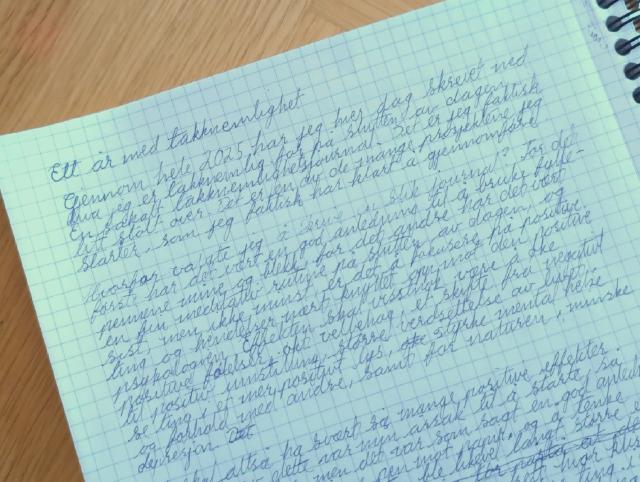 Ett år med takknemlighet
Gjennom hele 2025 har jeg hver dag skrevet ned
hva jeg er takknemlig for på slutten av dagen.
En såkalt takknemlighetsjournal. Det er jeg faktisk
litt stolt over. Det er en av de mange prosjektene jeg
starter, som jeg faktisk har klart å gjennomføre
Hvorfor valgte jeg å skrive en slik journal? For det
første har det vært en god anledning til å bruke fylle-
pennene mine og blekk, for det andre har det vært
en fin meditativ rutine på slutten av dagen, og
sist, men ikke minst er det å fokusere på positive
ting og hendelser nært knyttet opp mot den positive
psykologien. Effekten skal visstnok være å øke
positive følelser, økt velbehag, et skifte fra negativt
til positiv innstilling, større verdsettelse av livet,
se ting i et mer positivt lys, styrke mental helse
og forhold med andre, samt for naturen, minske
depresjon. Det
altså ha svært så mange positive effekter.
dette var min årsak til å starte, så
men det var som sagt en god anledn
pen mot papir, og å tenke
ble likevel langt større